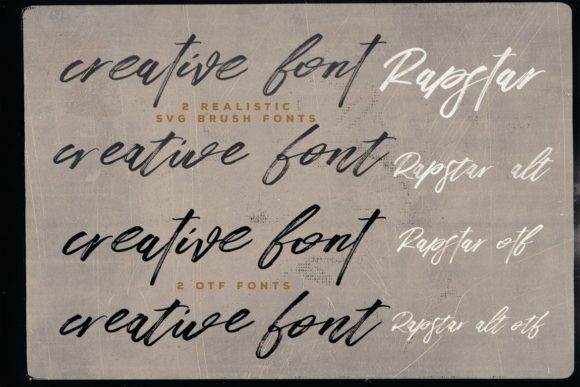 creative font Rapstar
2 REALISTIC
SVG BRUSH FONTS
creative font Rapstar alt
creative font Rapstar otf
2 OTF FONTS
creative font Rapstar alt otf